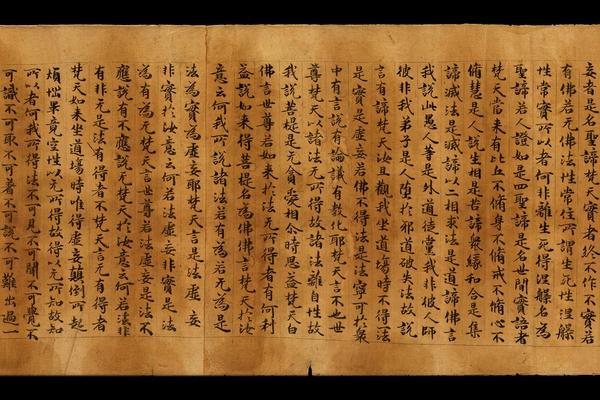 妄者是名聖諦梵天實者終不作不實若
有佛若无佛法性常住所謂生死性涅槃
性常實所以者何非離生死得涅槃名為
聖諦若人證如是四聖諦是名世間實語者
梵天當來有比丘不脩身不脩戒不脩心不
脩慧是人說生相是苦諦衆緣和合是集
諦滅法是滅諦以二相求法是道諦佛言
我說此愚人等是外道徒黨我非彼人師
彼非我弟子是人墮於邪道破失法故說
言有諦梵天汝且觀我坐道場時不得一法
是實是虛妄若佛不得法是法寧可於衆
中有言說有論議有教化耶梵天言不也世
尊梵天以諸法无所得故諸法離自性故
我說菩提是无貪愛相尒時思益梵天白
佛言世尊若如來於法无所得者有何利
益說如來得菩提名為佛佛言梵天於汝
意云何我所說諸法若有為若无為是
法為實為虛妄耶梵天言是法虛妄
非實於汝意云何若法虛妄非實是法
為有為无梵天言世尊若法虛妄是法不
應說有不應說无梵天於汝意云何若法非
有非无是法有得者不梵天言无有得者
梵天如來坐道場時唯得虛妄顛倒所起
煩惱畢竟空性以无所得故得以无所知故知
所以者何我所得法不可見不可聞不可覺不
可識不可取不可著不可說不可難出過一